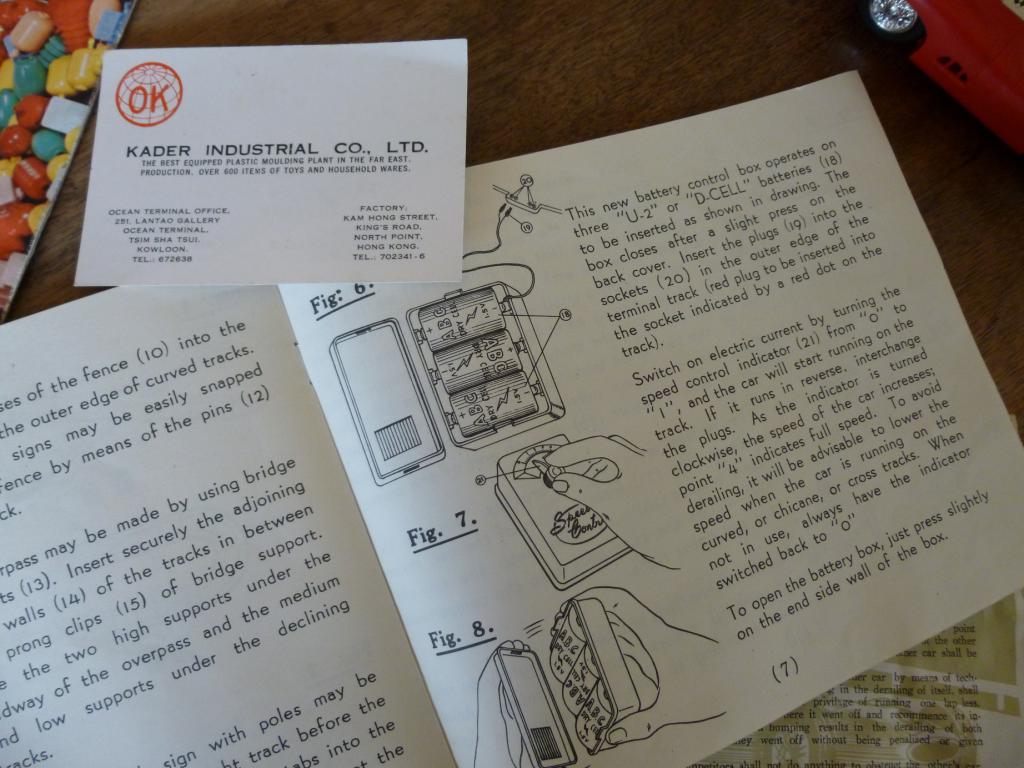 OK
KADER INDUSTRIAL CO., LTD.
THE BEST EQUIPPED PLASTIC MOULDING PLANT IN THE FAR EAST.
PRODUCTION. OVER 600 ITEMS OF TOYS AND HOUSEHOLD WARES.
OCEAN TERMINAL OFFICE,
251, LANTAO GALLERY
OCEAN TERMINAL,
TSIM SHA TSUI,
KOWLOON.
TEL.: 672638
FACTORY:
KAM HONG STREET,
KING'S ROAD,
NORTH POINT,
HONG KONG.
TEL.: 702341-6
ses of the fence (10) into the
the outer edge of curved tracks.
signs may be easily snapped
fence by means of the pins (12)
ck.
rpass may be made by using bridge
ts (13). Insert securely the adjoining
walls (14) of the tracks in between
prong clips (15) of bridge support.
e the two high supports under the
dway of the overpass and the medium
nd low supports under the declining
racks.
sign with poles may be
ht track before the
abs into the
t the
20
19
Fig: 6.
18
ABC
ABC
ABC
21
Fig. 7.
Speed
Contr
Fig. 8.
ABC
ABC
ABC
This new battery control box operates on
three "U-2" or "D-CELL" batteries (18)
to be inserted as shown in drawing. The
box closes after a slight press on the
back cover. Insert the plugs (19) into the
sockets (20) in the outer edge of the
terminal track (red plug to be inserted into
the socket indicated by a red dot on the
track).
Switch on electric current by turning the
speed control indicator (21) from "O" to
"1", and the car will start running on the
track. If it runs in reverse. interchange
the plugs. As the indicator is turned
clockwise, the speed of the car increases;
point "4" indicates full speed. To avoid
derailing, it will be advisable to lower the
speed when the car is running on the
curved, or chicane, or cross tracks. When
not in use, always have the indicator
switched back to "O"
To open the battery box, just press slightly
on the end side wall of the box.
(7)
point
the other
ner car shall be
her car by means of tech-
g in the derailing of itself, shall
privilege of running one lap less.
here it went off and recommence its in-
bumping results in the derailing of both
hey went off without being penalised or given
mpetitors shall not do anything to obstruct the other's car